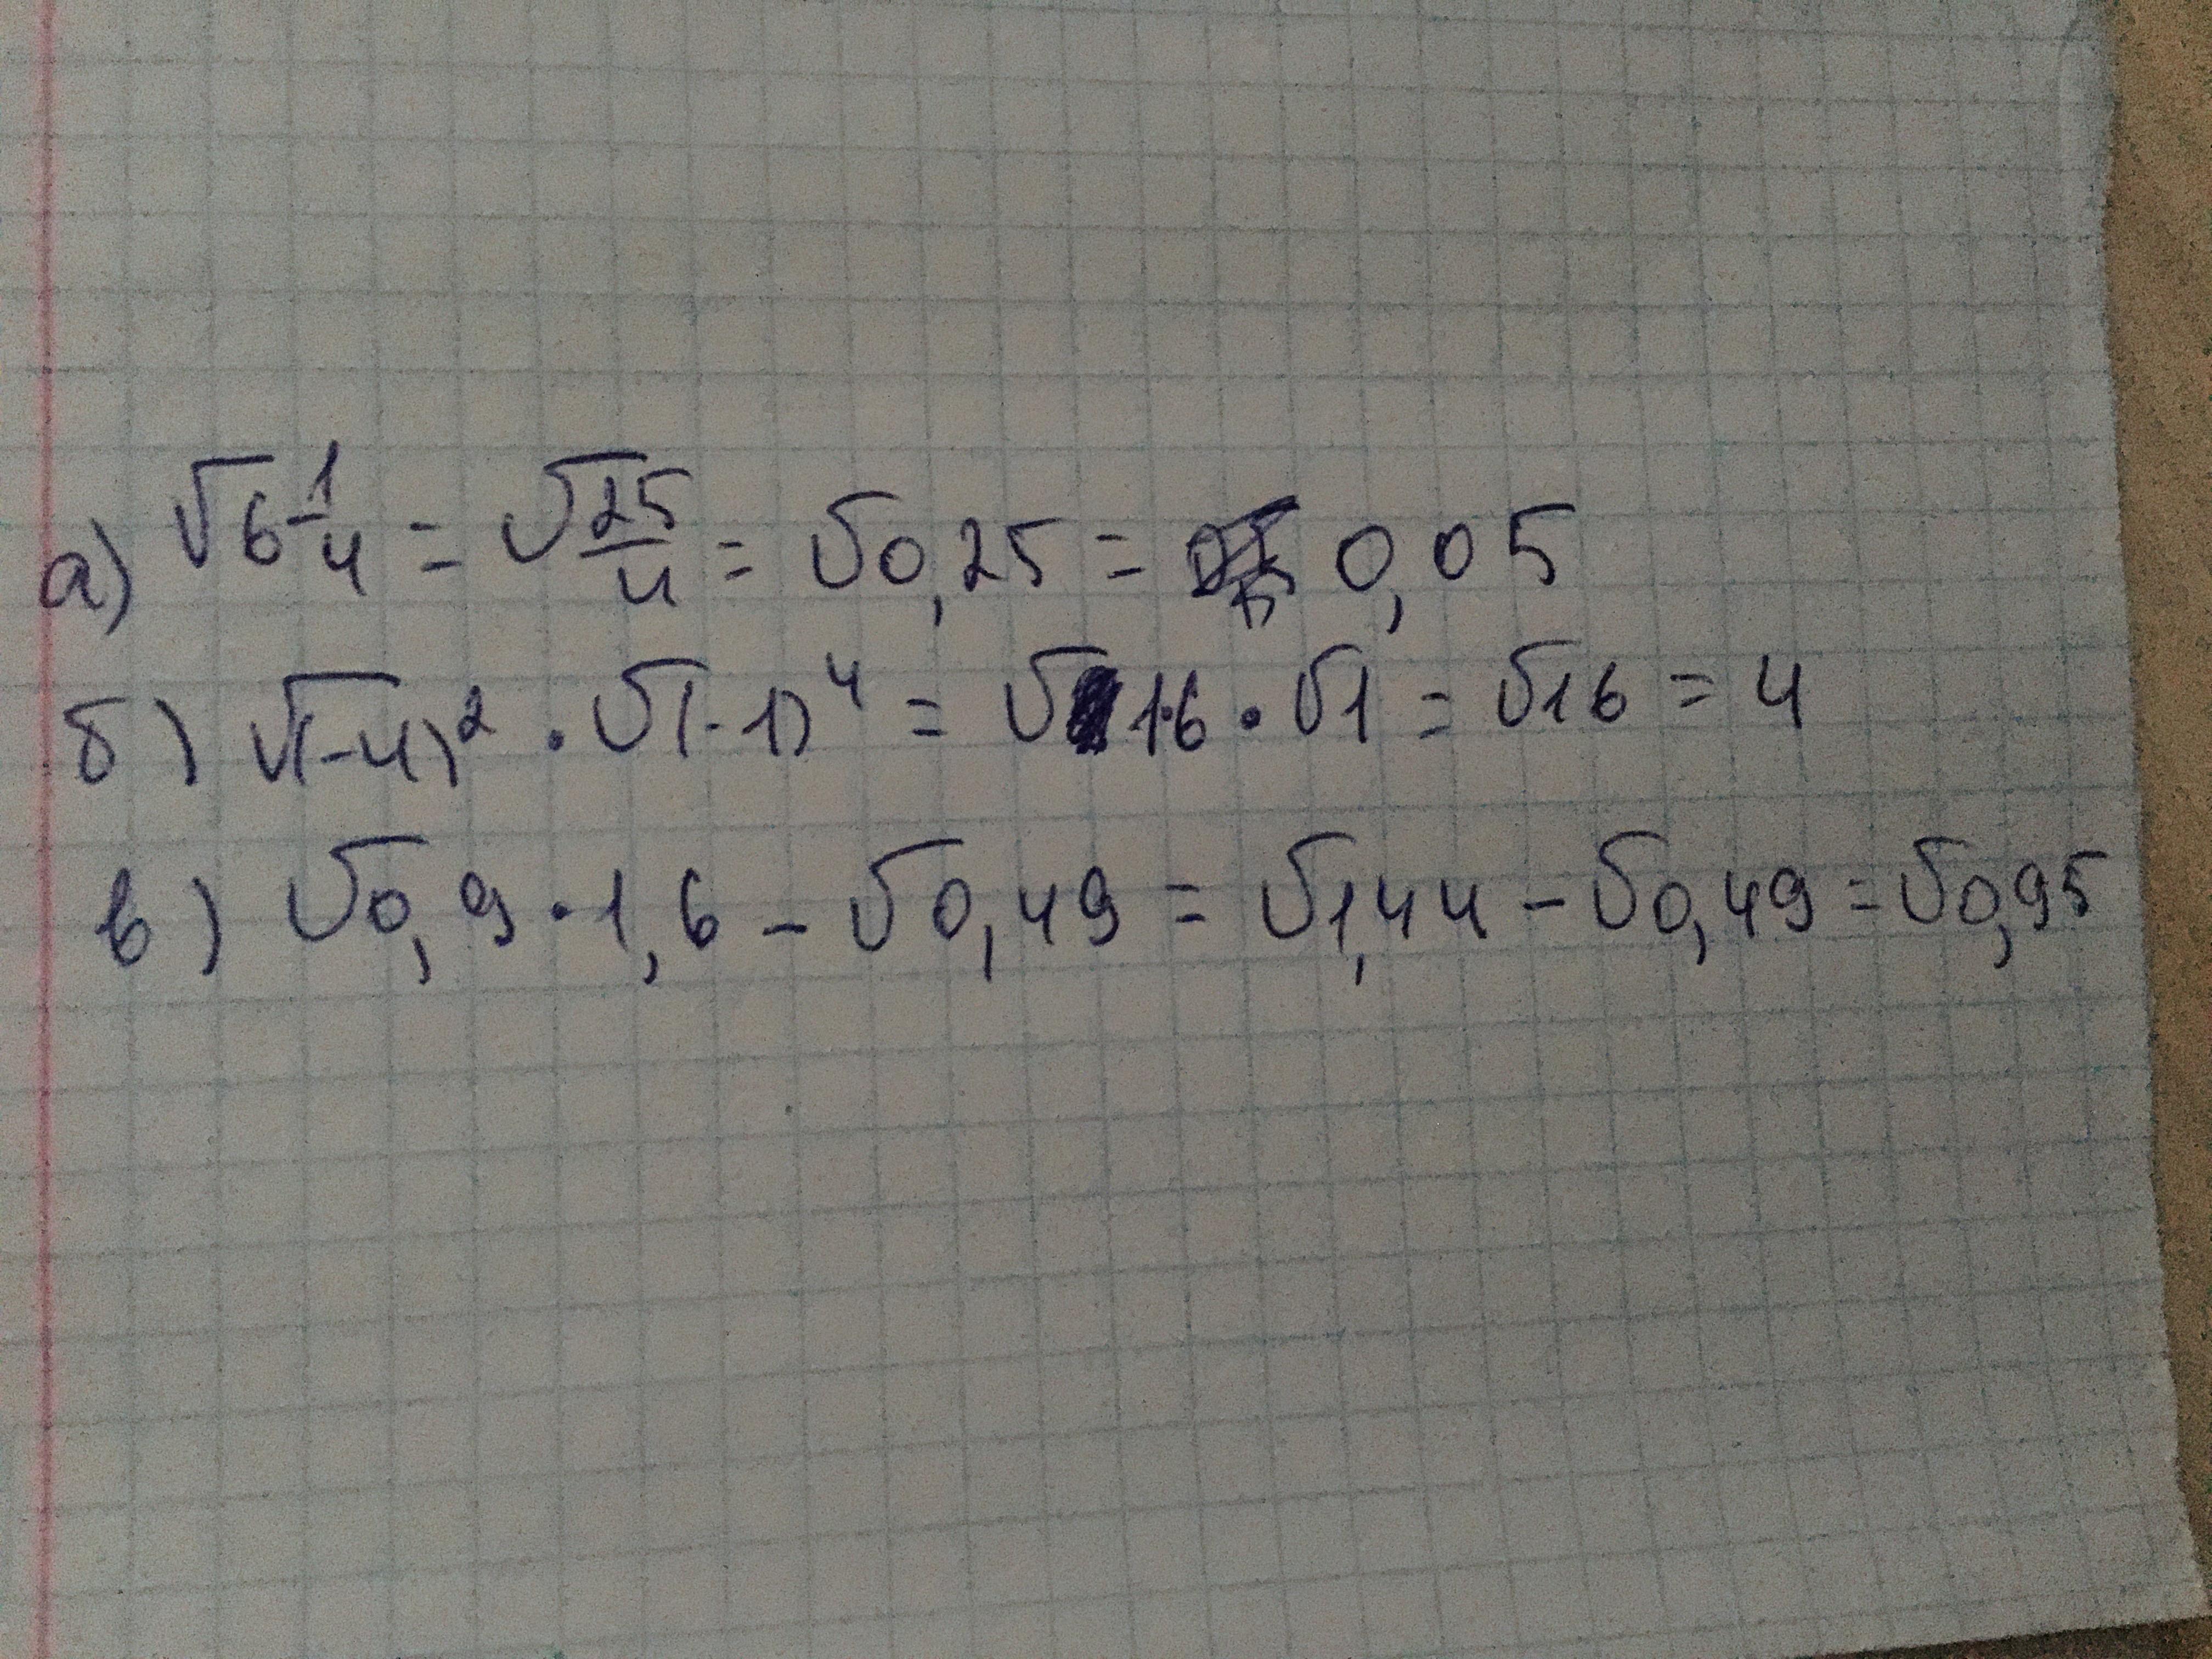 а) √6 1/4 = √25/4 = √0,25 = 0,05
б) √(-4)² · √(-1)⁴ = √16 · √1 = √16 = 4
в) √0,9 · 1,6 - √0,49 = √1,44 - √0,49 = √0,95